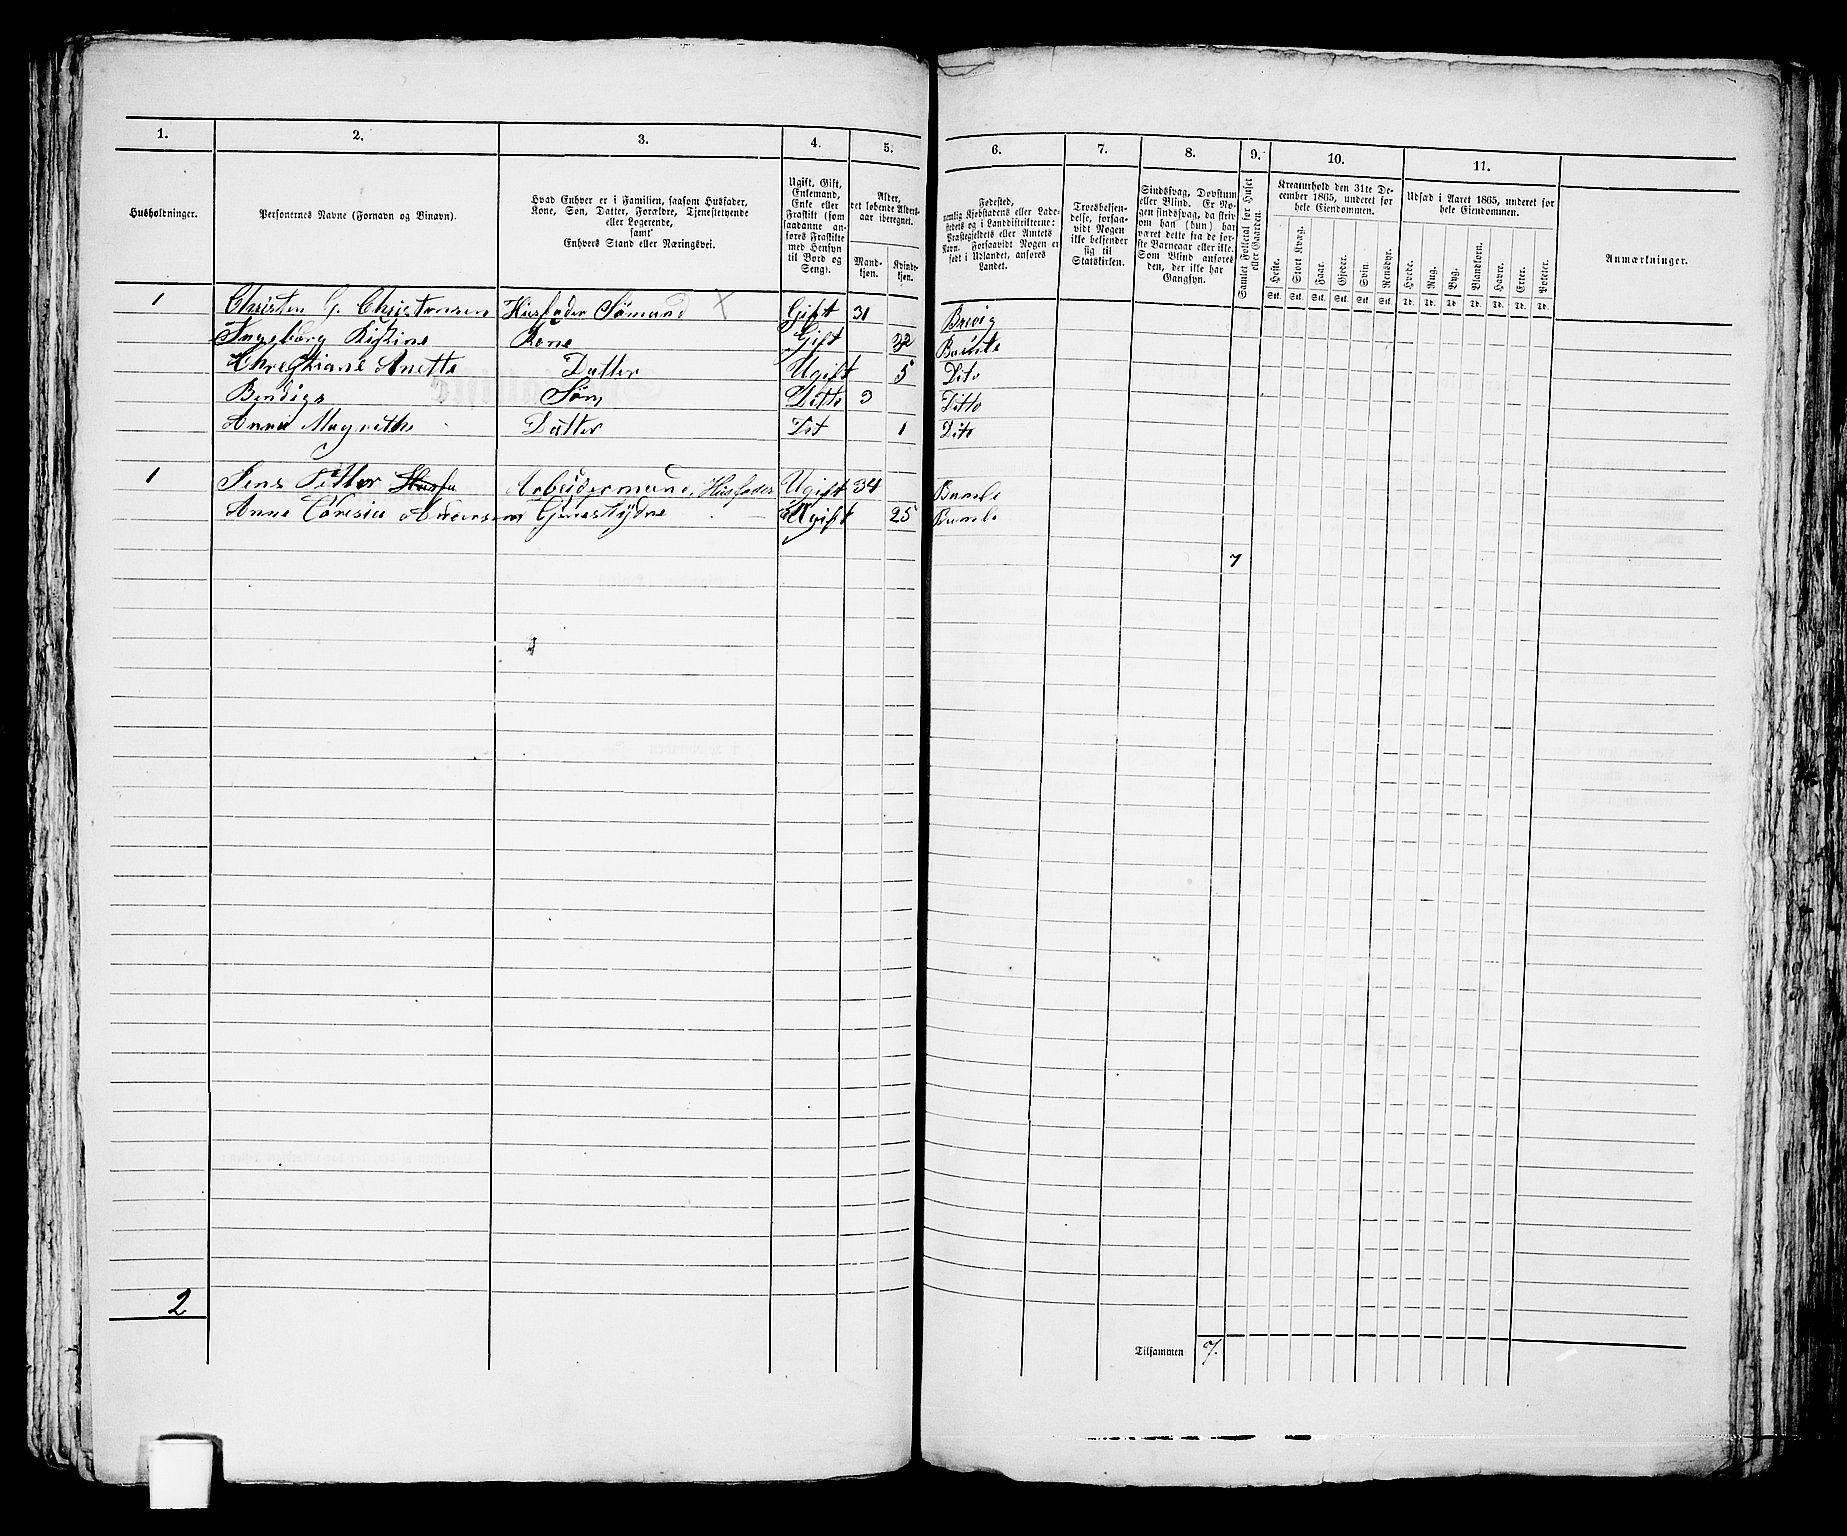 1. 2. 3. 4. 5. 6. 7. 8. 9. 10. 11.
Husholdninger.
Personernes Navne (Fornavn og Binavn).
Hvad Enhver er i Familien, saasom Husfader,
Kone, Søn, Datter, Forældre, Tjenestetyende
eller Logerende,
samt
Enhvers Stand eller Næringsvei.
Ugift, Gift,
Enkemand,
Enke eller
Fraskilt (som
saadanne an-
føres Fraskilte
med Hensyn
til Bord og
Seng).
Alder,
det løbende Alders-
aar iberegnet.
Mand-
kjøn.
Kvinde-
kjøn.
Fødested,
nemlig Kjøbstadens eller Lade-
stedets og i Landdistrikterne:
Præstegjeldets eller Amtets
Navn. Forsaavidt Nogen er
født i Udlandet, anføres
Landet.
Troesbekjen-
delse, forsaa-
vidt Nogen
ikke bekjender
sig til
Statskirken.
Sindssvag, Døvstum
eller Blind. Er No-
gen sindssvag, da skriv
om han (hun) har
været dette fra de før-
ste Barneaar eller ikke.
Som Blind anføres
den, der ikke har
Gangsyn.
Samlet Folketal for Huset
eller Gaarden.
Kreaturhold den 31te De-
cember 1865, underet for
hele Eiendommen.
Heste. Stort Kvæg. Faar. Gjeder. Svin. Rensdyr.
Stk. Stk. Stk. Stk. Stk. Stk.
Udsæd i Aaret 1865, underet for
hele Eiendommen.
Hvede. Rug. Byg. Blandkorn. Havre. Erter. Poteter.
Td. Td. Td. Td. Td. Td. Td.
Anmærkninger.
1 Christen G. Christensen Husfader Sømand X Gift 31 Brevig
Ingeborg Kone Gift 32 Bamle
Christiane Anette Datter Ugift 5 Dito
Søn Ditto 3 Ditto
Anne Magrethe Datter Dit 1 Dito
1 Jens Petter Husfa Arbeidermand, Husfader Ugift 34 Bamle
Anne Ugift 25 Bamle
7
2
Tilsammen 7.